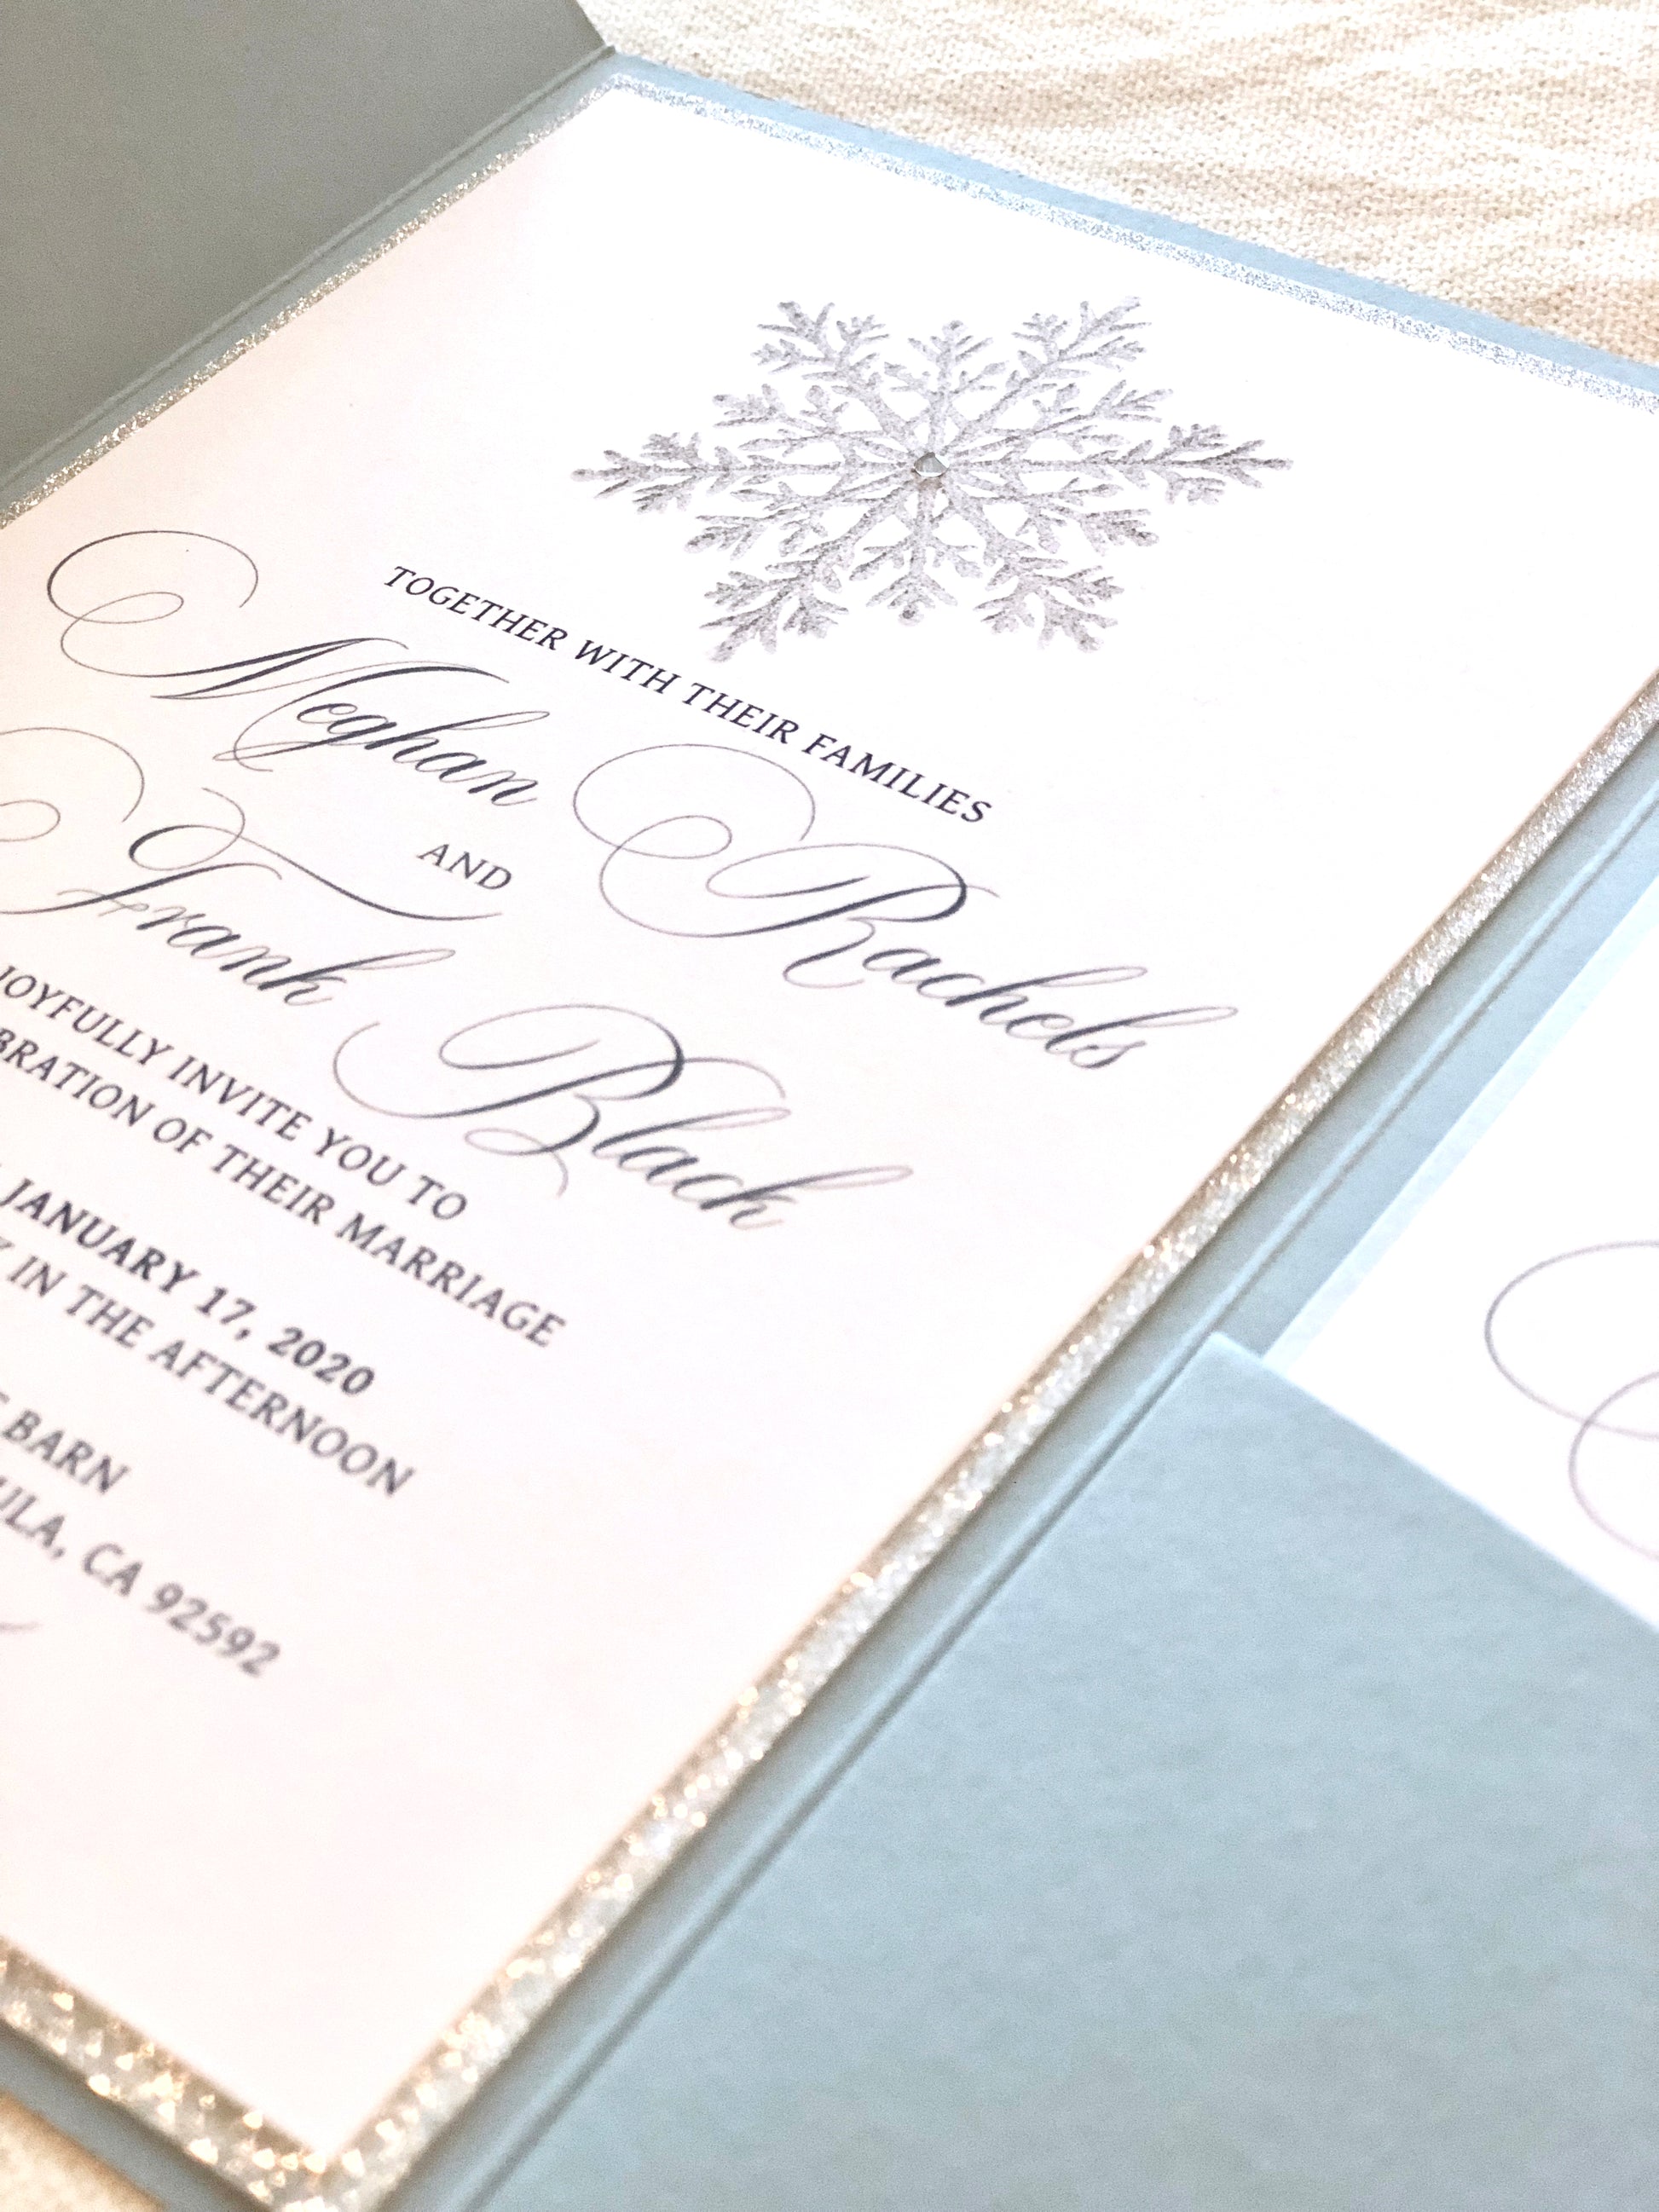 TOGETHER WITH THEIR FAMILIES
Meghan Rachels
AND
Frank Black
JOYFULLY INVITE YOU TO
OF THEIR MARRIAGE
JANUARY 17, 2020
IN THE AFTERNOON
BARN
CA 92592